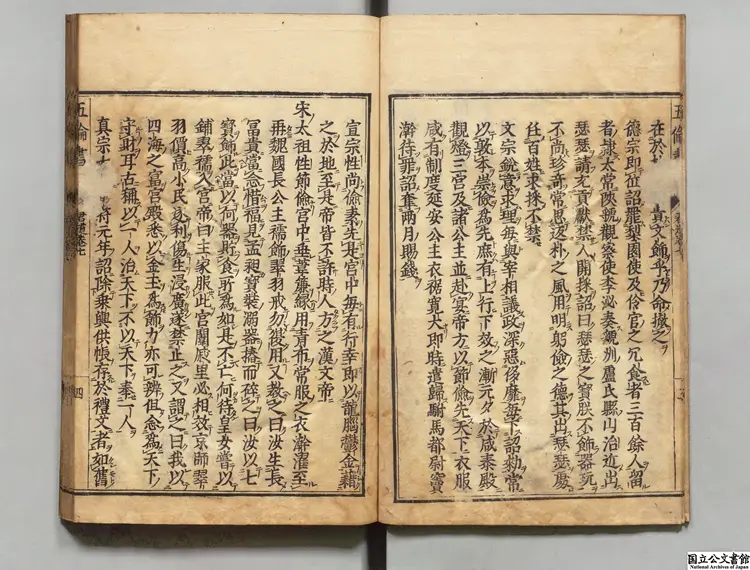 在於 貴文飾乎乃命撤之
德宗即位詔罷梨園使及伶官之冗食者三百餘人留
者隷太常陝虢觀察使李泌奏虢州盧氏縣山冶近出
瑟瑟請充貢獻禁人開採詔曰瑟瑟之寶朕不飾器玩
不尚珍奇常思返朴之風用明躬儉之德其出瑟瑟處
任百姓求採不禁
文宗銳意求理每與宰相議政深惡侈靡每下詔勑常
以敦本崇儉爲先庶有上行下效之漸元夕於咸泰殿
觀燈三宮及諸公主並赴宴帝方以節儉先天下衣服
咸有制度延安公主衣裾寬大即時遣歸駙馬都尉竇
澣待罪詔奪兩月賜錢
五倫書
宣宗性尚儉素先是宮中每有行幸即以龍腦鬱金藉
之於地至是帝皆不許時人方之漢文帝
宋太祖性節儉宮中垂葦簾緣用青布常服之衣澣濯至
再魏國長公主襦飾翠羽戒勿復用又教之曰汝生長
冨貴當念惜福見孟昶寶裝溺器摏而碎之曰汝以七
寳飾此當以何器貯食所爲如是不亡何待皇女嘗以
鋪翠襦入宮帝曰主家服此宮闈戚里必相效京師翠
羽價高小民逐利傷生浸廣遂禁止之又謂之曰我以
四海之富宮殿悉以金玉爲飾力亦可辨但念為天下
守財耳古稱以一人治天下不以天下奉一人
真宗 符元年詔除乗輿供帳存於禮文者如舊
五倫書
四
国立公文書館
National Archives of Japan